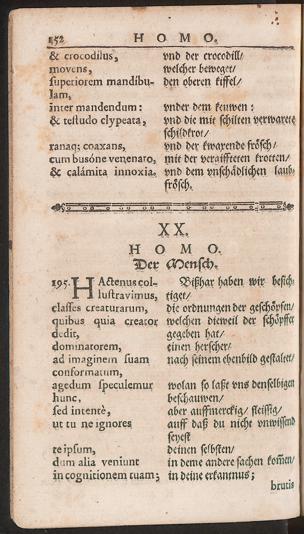 152 HOMO.
& crocodilus, vnd der crocodill/
movens, welcher beweget/
superiorem mandibu- den oberen kiffel/
lam,
inter mandendum: vnder dem keuwen:
& testudo clypeata, vnd die mit schilten verwarete
schildkrot/
ranaq; coaxans, vnd der kwarende frösch/
cum bufóne venenaro, mit der veraiffteten krotten/
& calámita innoxia, vnd dem vnschädlichen laub-
frösch.
XX.
HOMO.
Der Mensch.
195. HActenus col- Bißhar haben wir besich-
lustravimus, tiget/
classes creaturarum, die ordnungen der geschöpfen/
quibus quia creator welchen dieweil der schöpffer
dedit, gegeben hat/
dominatorem, einen herscher/
ad imaginem suam nach seinem ebenbild gestaltet/
conformatum,
agedum speculemur wolan so laßt vns denselbigen
hunc, beschauwen/
sed intentè, aber auffmerckig/ fleissig/
ut tu ne ignores auff daß du nicht vnwissend
seyest
te ipsum, deinen selbsten/
dum alia veniunt in deme andere sachen kom̃en/
in cognitionem tuam; in deine erkantnus;
brutis